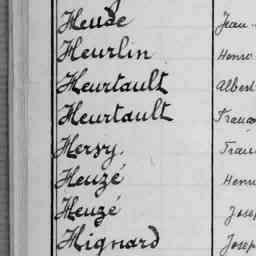 Heude Jean
Heurlin Henri
Heurtault Albert
Heurtault
Hersy.
Heuzé Henri
Heuzé Josep
Hignard Josep